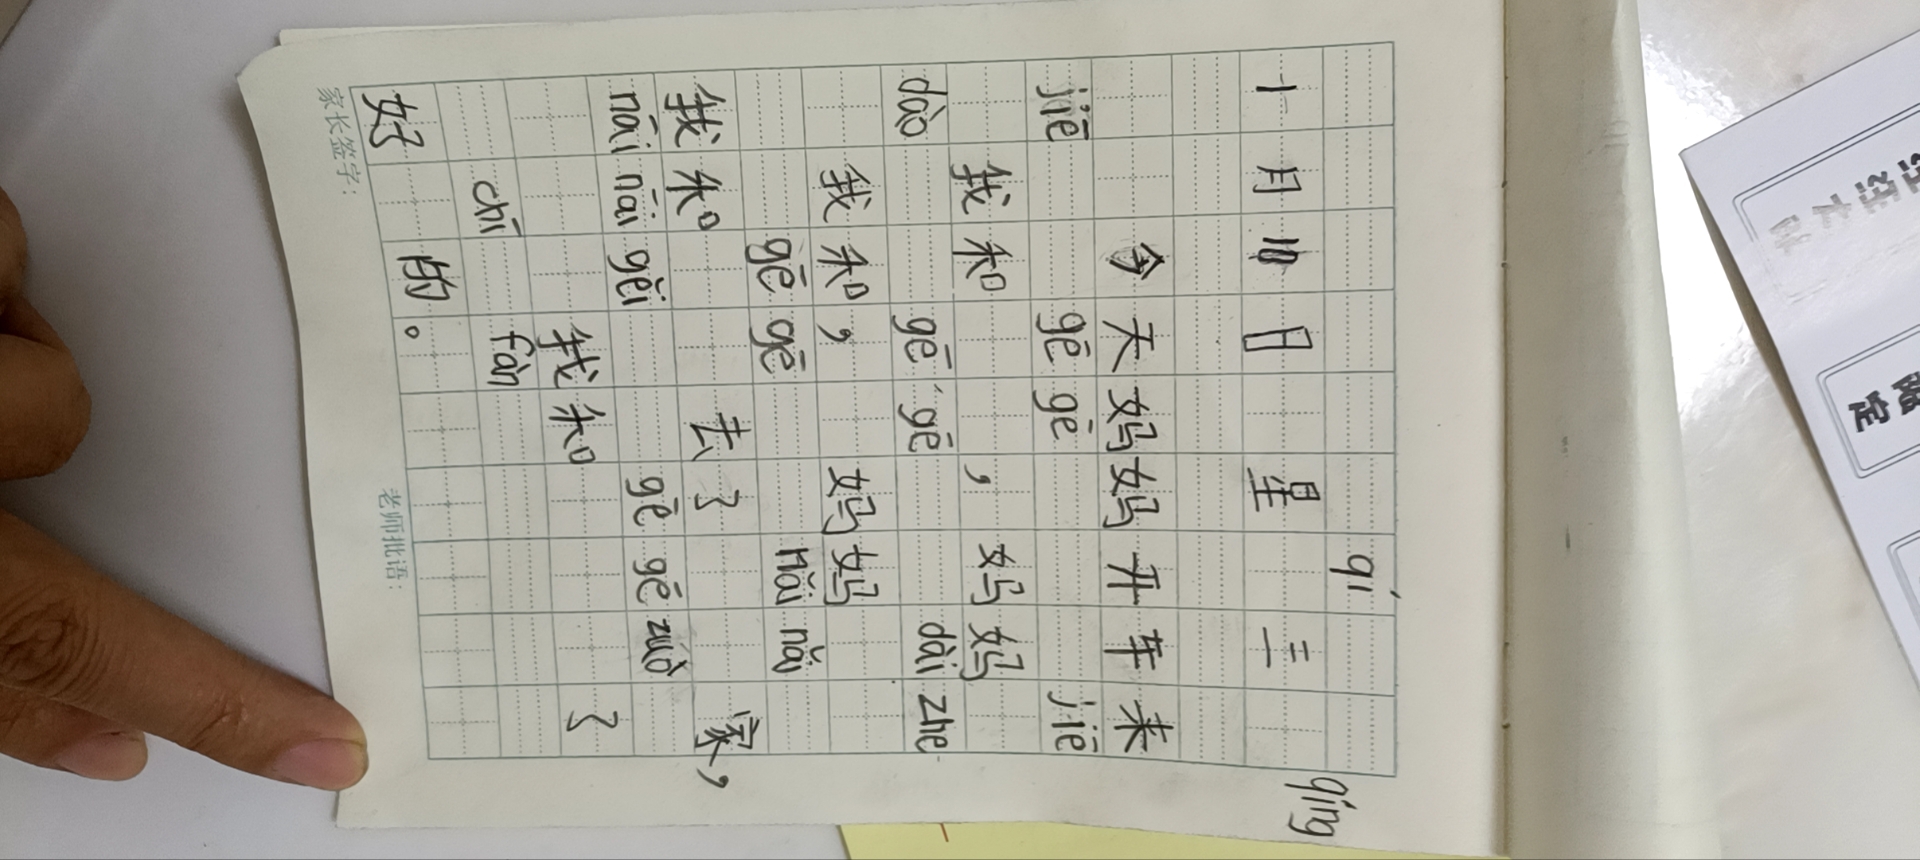 qí qíng
十月日 星三
今天妈妈开车来
jiē gē gē jiē
我和 ，妈妈
dào gē gē dài zhe
我和， 妈妈
gē gē nǎi nǎi
我和 去了 家，
nǎi nai gěi gē gē zuò
我和 了
chī fàn
好 的。
家长签字： 老师批语：